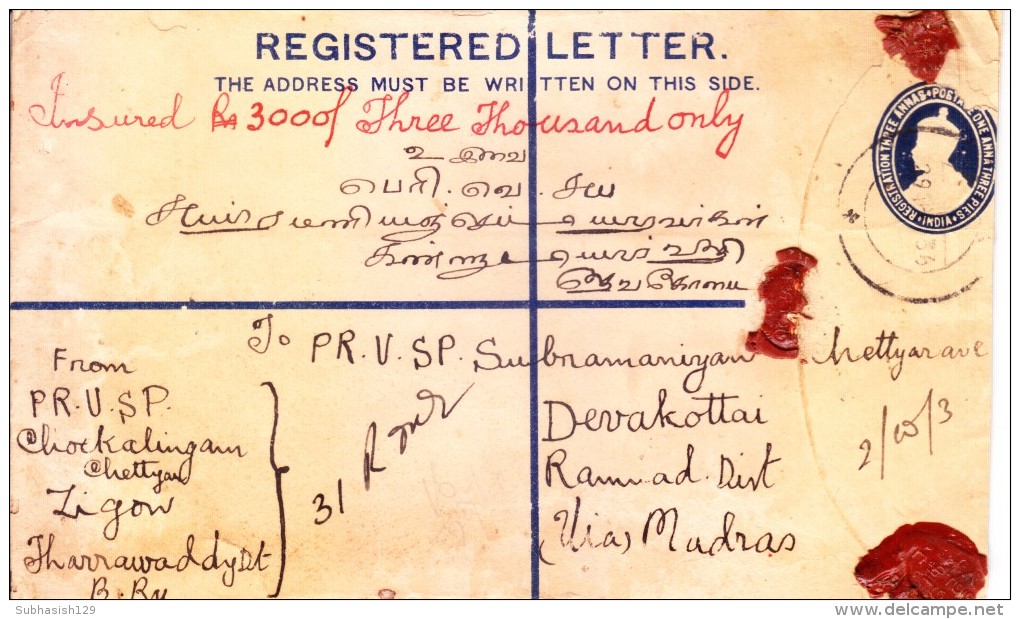 REGISTERED LETTER.
THE ADDRESS MUST BE WRITTEN ON THIS SIDE.
Insured Rs 3000/ Three Thousand only
REGISTRATION THREE ANNAS • POSTAGE ONE ANNA THREE PIES • INDIA
உ
பெரி. வெ. சுப
சுப்ரமணிய
To PR. V. SP. Subramaniyan Chettyar
Devakottai
Ramnad. Dist
(Via) Madras
From
PR. V. SP.
Chockalingam
Chettyar
Zigon
Tharrawaddy Dt
31
Subhasish129
delcampe.net